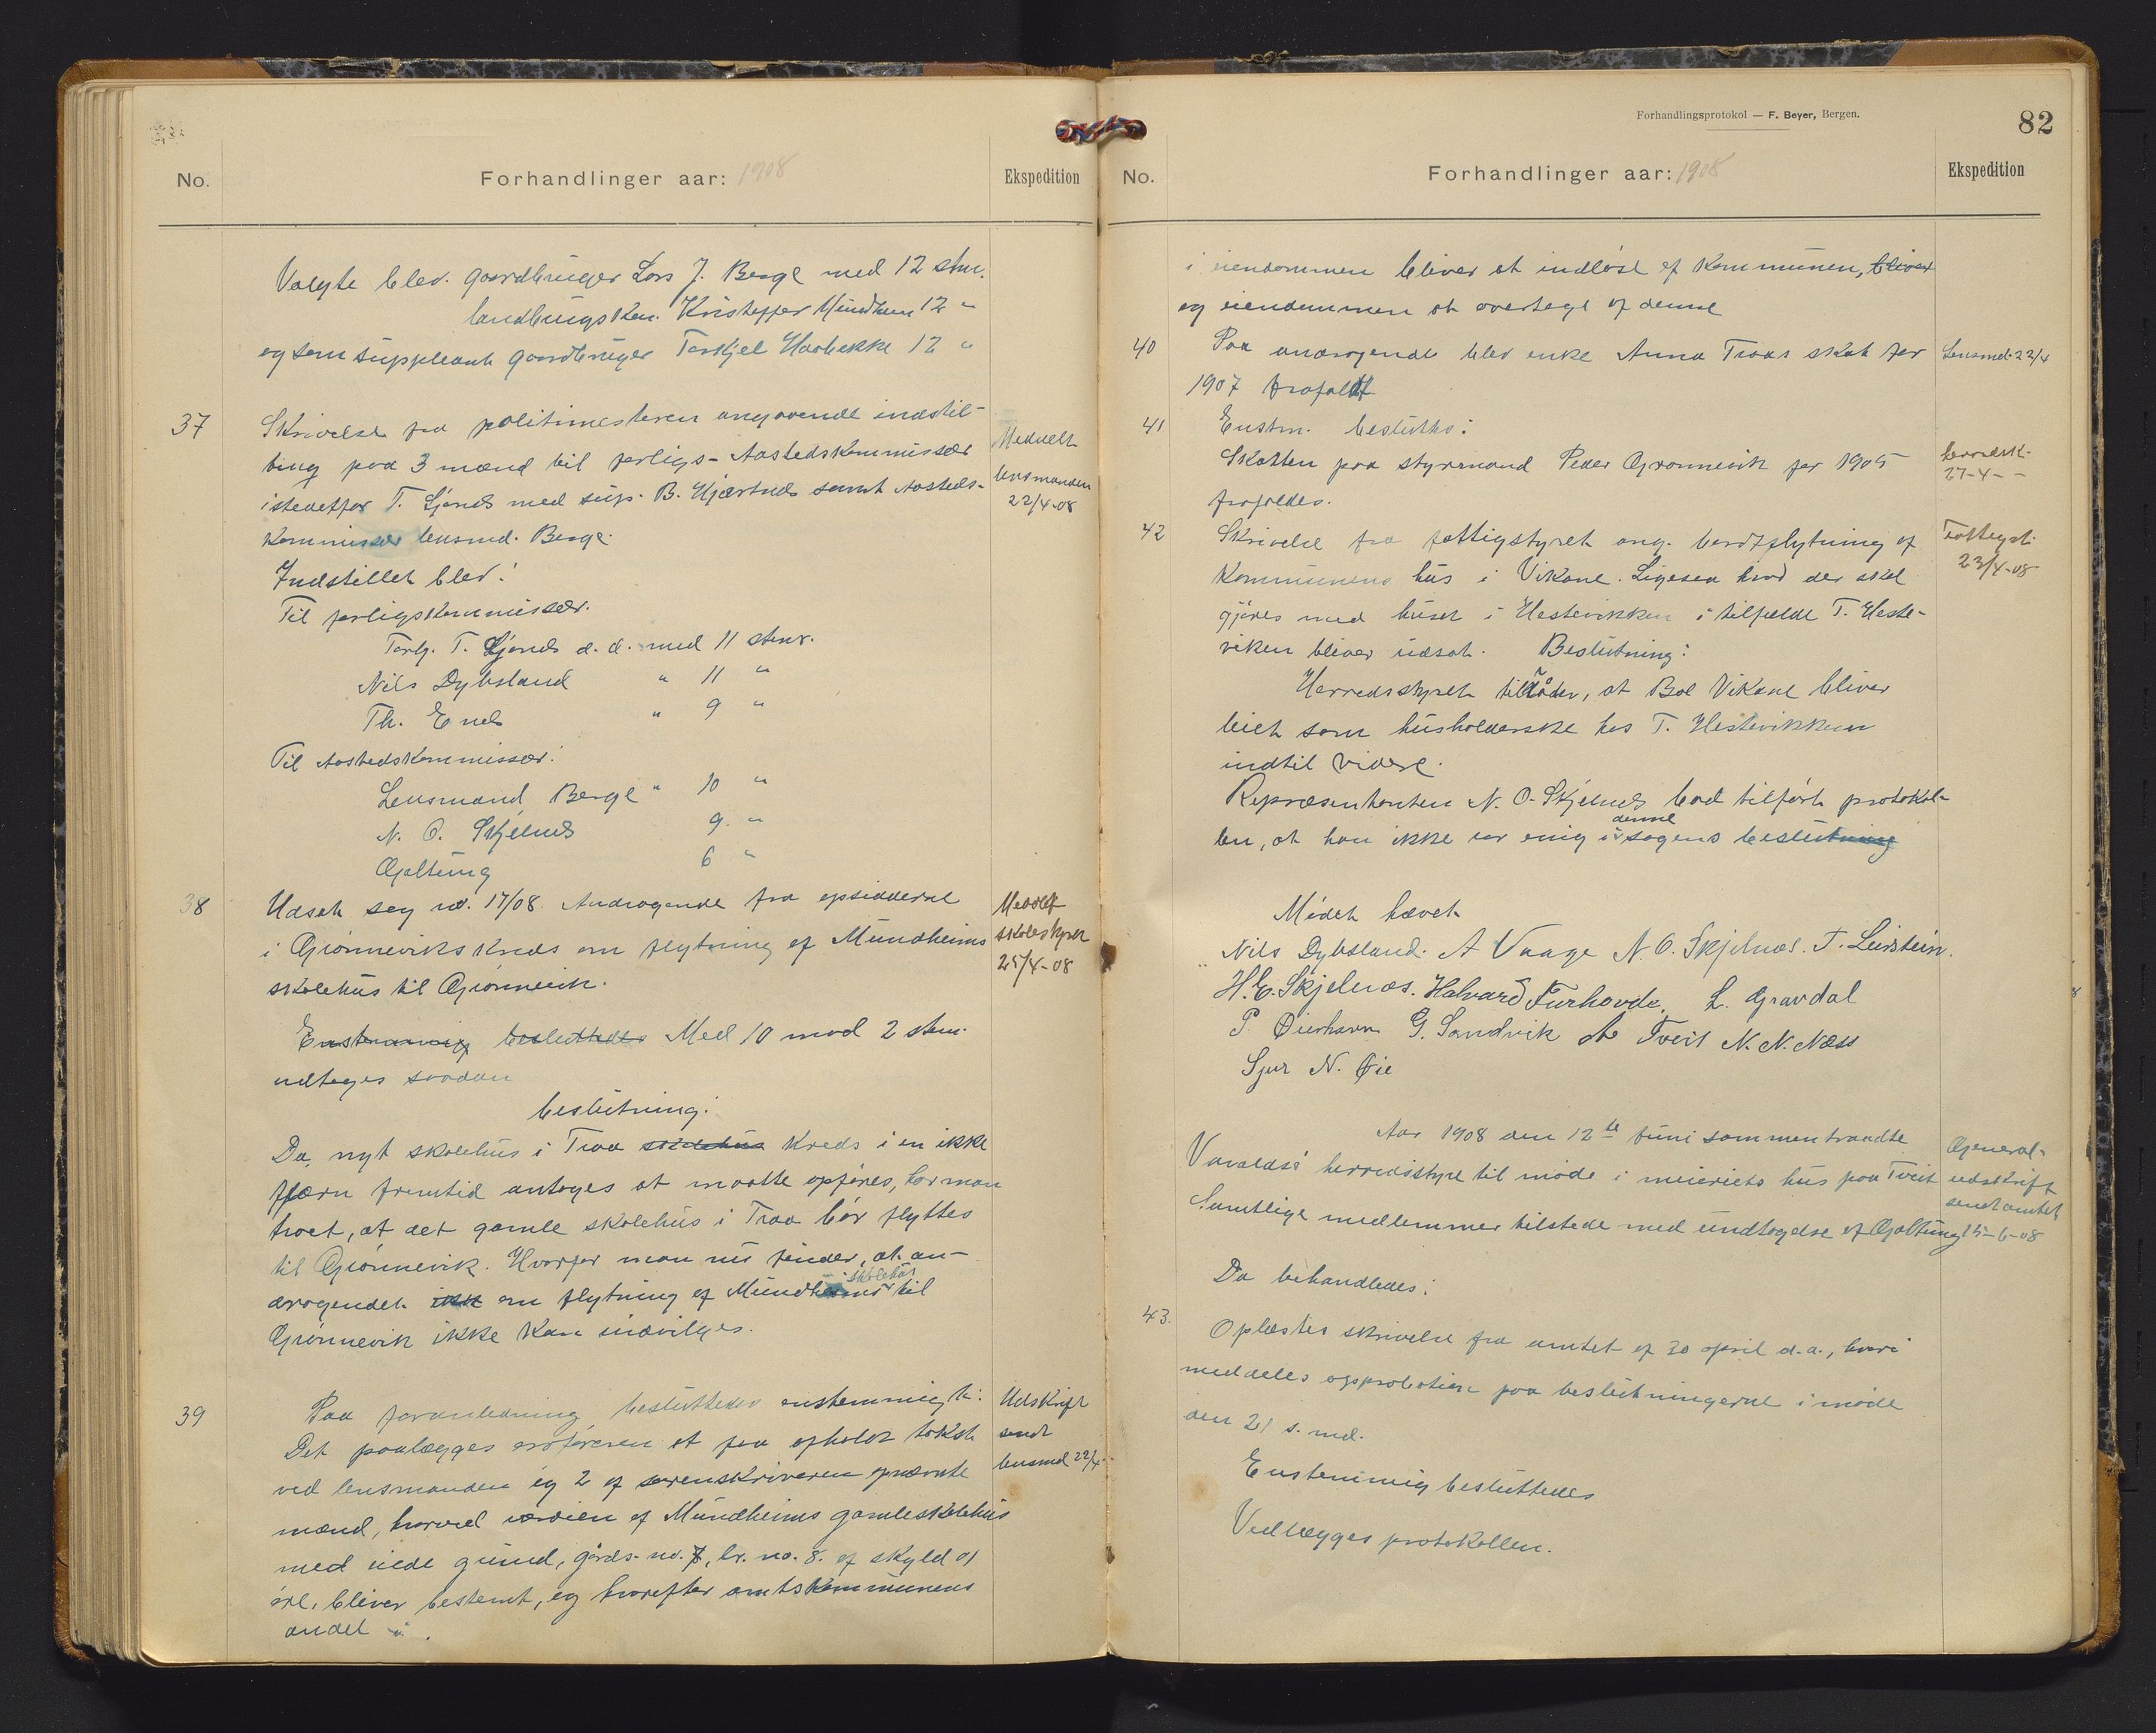 No. Forhandlinger aar: 1908 Ekspedition
Valgte blev. gaardbruger Lars J. Berge med 12 stm.
landbrugskan. Kristoffer Mundheim 12 "
og som suppleant gaardbruger Torkjel Haabekke 12 "
37 Skrivelse fra politimesteren angaaende indstil-
ling paa 3 mænd til forligs- Aastedskommissær
istedetfor T. Ljones med sup. B. Hjærtnes samt Aasteds-
kommissær lensmd. Berge.
Meddelt
lensmanden
22/4-08
Indstillet blev:
Til forligskommissær.
Torb. T. Ljones d. æ. med 11 stmr.
Nils Dybsland " 11 "
Th. Enes " 9 "
Til Aastedskommissær:
Lensmand Berge " 10 "
N. O. Skjelnes 9 "
Gjaltung 6 "
38 Udsat sag no. 17/08. Andragende fra opsidderne
i Grønneviks kreds om flytning af Mundheims
skolehus til Grønnevik.
Meddelt
skolestyret
25/4-08
Enstemmig besluttedes Med 10 mod 2 stem.
udtages saadan
beslutning:
Da, nyt skolehus i Traa skolehus kreds i en ikke
fjærn fremtid antages at maatte opføres, har man
troet, at det gamle skolehus i Traa bør flyttes
til Grønnevik. Hvorfor man nu finder, at an-
dragendet om flytning af Mundheims skolehus til
Grønnevik ikke kan indvilges.
39 Paa foranledning besluttedes enstemmigt:
Det paalægges ordføreren at faa afholdt takst
ved lensmanden og 2 af sorenskriveren opnævnte
mænd, hvorved værdien af Mundheims gamle skolehus
med iede grund, gårds-no. 7, br. no. 8. af skyld 01
øre, bliver bestemt, og hvorefter amtskommunens
andel
Udskrift
sendt
lensmd 22/4
Forhandlingsprotokol — F. Beyer, Bergen.
82
No. Forhandlinger aar: 1908 Ekspedition
i eiendommen bliver at indløse af kommunen, bliver
og eiendommen at overtage af denne
40 Paa andragende blev enke Anna Traas skat for
1907 frafaldt
Lensmd. 22/4
41 Enstm. besluttes:
Skatten paa styrmand Peder Grønnevik for 1905
frafaldes.
herredsk.
27-4--
42 Skrivelse fra fattigstyret ang. bortflytning af
kommunens hus i Vikane. Ligesaa hvad der skal
gjøres med huset i Hestevikken i tilfælde T. Heste-
viken bliver udsat. Beslutning:
Fattigst.
23/4-08
Herredsstyret tilråder, at Bol Vikane bliver
leiet som husholderske hos T. Hestevikken
indtil videre.
Repræsentanten N. O. Skjelnes bad tilført protokol-
len, at han ikke var enig i denne sagens beslutning
Mødet hævet
Nils Dybsland. A Vaage N. O. Skjelnæs. T. Leirstein.
H. E. Skjelnæs. Halvard Furhovde. L. Gravdal
P. Øierhavn G. Sandvik A Tveit N. N. Næss
Sjur N. Øie
Aar 1908 den 12te juni sammentraadte
Varaldsø herredsstyre til møde i meieriets hus paa Tveit
Samtlige medlemmer tilstede med undtagelse af Gjaltung
General-
udskrift
sendt amtet
15-6-08
Da behandledes:
43. Oplæstes skrivelse fra amtet af 30 april d.a., hvori
meddeles approbation paa beslutningerne i møde
den 21 s. md.
Enstemmig besluttedes
Vedlægges protokollen.